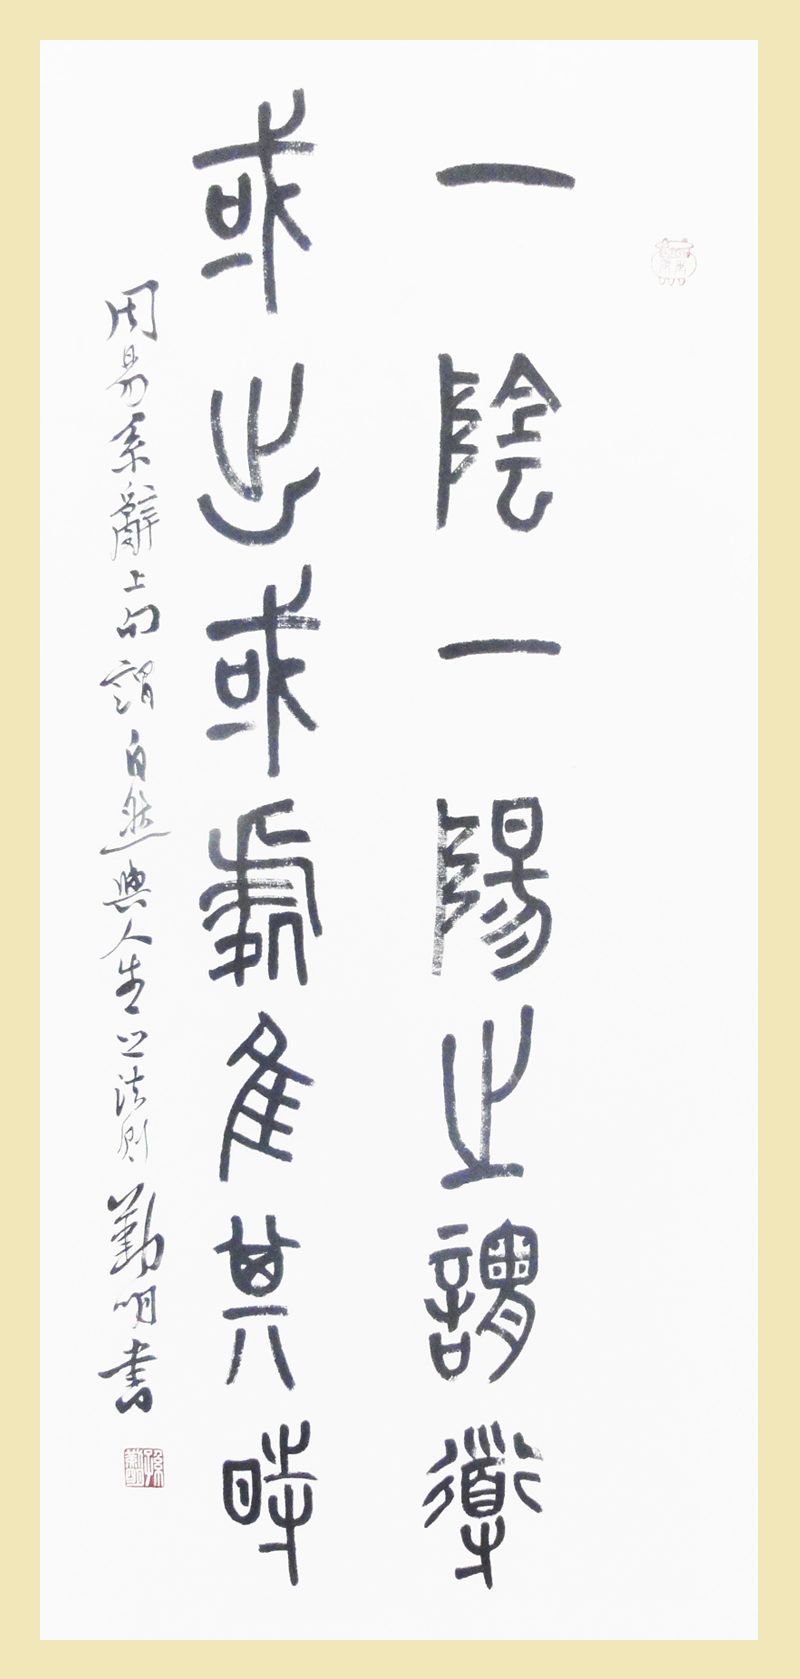 一陰一陽之謂道
或出或處隹其時
周易系辭上句謂自然與人生之法則勤明書